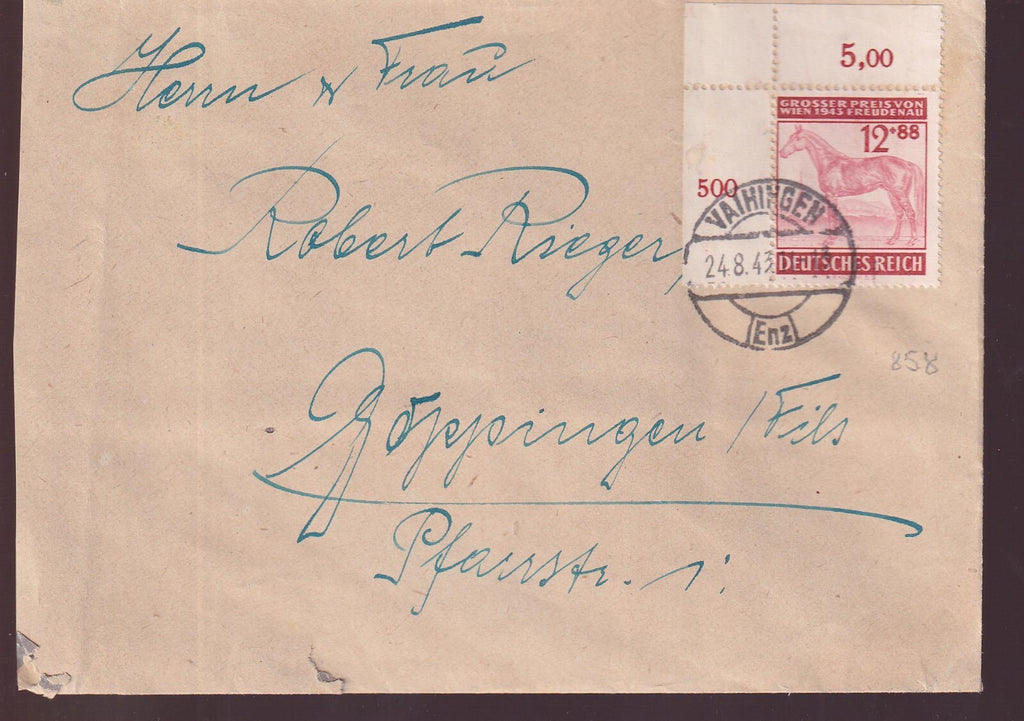 Herrn & Frau
Robert Rieger,
Göppingen / Fils
Pfarrstr. 1.
5,00
500
GROSSER PREIS VON
WIEN 1943 FREUDENAU
12+88
DEUTSCHES REICH
VAIHINGEN
24.8.43
Enz
858